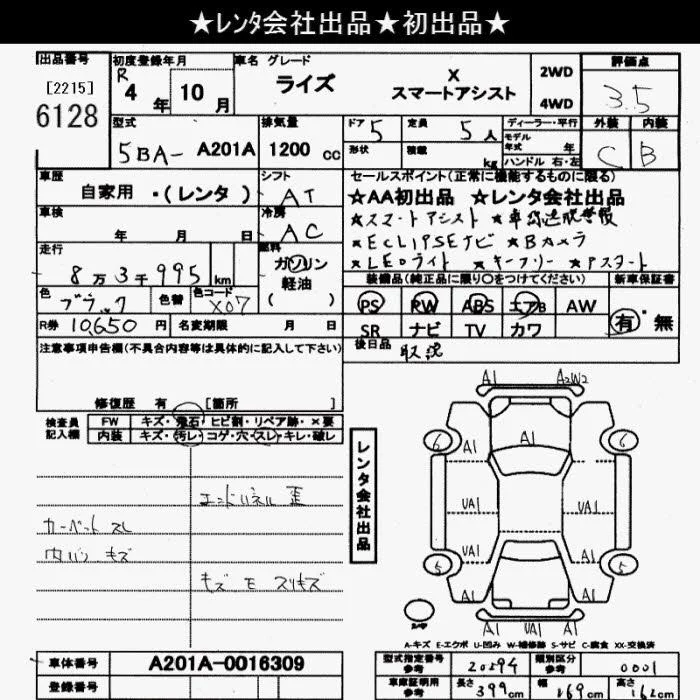 ★レンタ会社出品★初出品★
出品番号
[2215]
6128
初度登録年月
R 4 年 10 月
車名 グレード
ライズ
X
スマートアシスト
2WD
4WD
評価点
3.5
外装 内装
C B
型式
5BA- A201A
排気量
1200 cc
ドア 5
形状
定員 5人
積載 kg
ディーラー・平行
モデル年式 年
ハンドル 右・左
車歴
自家用 ・(レンタ)
シフト
AT
車検
年 月 日
冷房
AC
走行
8万3千995 km
燃料
ガソリン
軽油
( )
色
ブラック
色替
色コード
X07
R券 10,650 円
名変期限 月 日
セールスポイント(正常に機能するものに限る)
★AA初出品 ★レンタ会社出品
★スマートアシスト
★ECLIPSEナビ ★Bカメラ
★LEDライト ★キーフリー ★Pスタート
装備品(純正品に限り○をつけてください)
PS PW ABS エアB AW
SR ナビ TV カワ
新車保証書
有・無
後日品
取説
注意事項申告欄(不具合内容等は具体的に記入して下さい)
修復歴 有 [箇所 ]
検査員記入欄
FW キズ・飛石・ヒビ割・リペア跡・×要
内装 キズ・汚レ・コゲ・穴・スレ・キレ・破レ
エンドパネル 歪
カーペット スレ
内バリ キズ
キズ E スリキズ
レンタ会社出品
A1 A2W2
6 A1 A1 6
UA1 UA1
UA1 UA1
5 A1 A1 5
A1 UA1 A1
A-キズ E-エクボ U-凹み W-補修跡 S-サビ C-腐食 XX-交換済
車体番号
A201A-0016309
登録番号
型式指定番号
参考
20294
類別区分
参考
0001
車庫証明用
参考
長さ 399 cm
幅 169 cm
高さ 162 cm